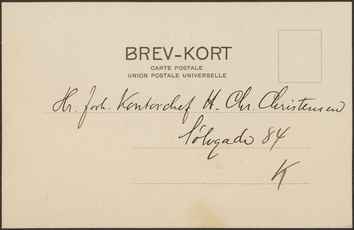 BREV-KORT
CARTE POSTALE
UNION POSTALE UNIVERSELLE
Hr. fort. Kontorchef H. Chr. Christensen
Sølvgade 84
K